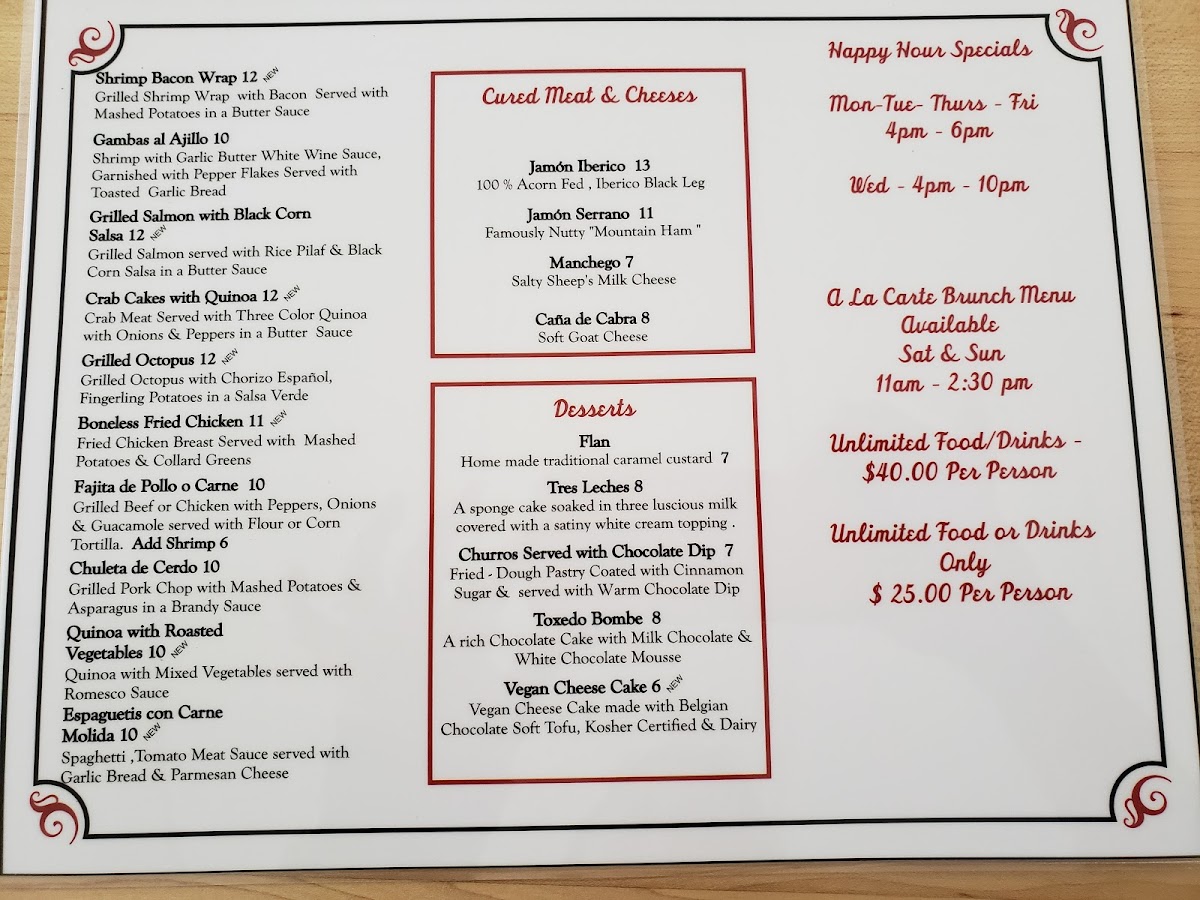 Shrimp Bacon Wrap 12 NEW
Grilled Shrimp Wrap with Bacon Served with
Mashed Potatoes in a Butter Sauce
Gambas al Ajillo 10
Shrimp with Garlic Butter White Wine Sauce,
Garnished with Pepper Flakes Served with
Toasted Garlic Bread
Grilled Salmon with Black Corn
Salsa 12 NEW
Grilled Salmon served with Rice Pilaf & Black
Corn Salsa in a Butter Sauce
Crab Cakes with Quinoa 12 NEW
Crab Meat Served with Three Color Quinoa
with Onions & Peppers in a Butter Sauce
Grilled Octopus 12 NEW
Grilled Octopus with Chorizo Español,
Fingerling Potatoes in a Salsa Verde
Boneless Fried Chicken 11 NEW
Fried Chicken Breast Served with Mashed
Potatoes & Collard Greens
Fajita de Pollo o Carne 10
Grilled Beef or Chicken with Peppers, Onions
& Guacamole served with Flour or Corn
Tortilla. Add Shrimp 6
Chuleta de Cerdo 10
Grilled Pork Chop with Mashed Potatoes &
Asparagus in a Brandy Sauce
Quinoa with Roasted
Vegetables 10 NEW
Quinoa with Mixed Vegetables served with
Romesco Sauce
Espaguetis con Carne
Molida 10 NEW
Spaghetti ,Tomato Meat Sauce served with
Garlic Bread & Parmesan Cheese
Cured Meat & Cheeses
Jamón Iberico 13
100 % Acorn Fed , Iberico Black Leg
Jamón Serrano 11
Famously Nutty "Mountain Ham "
Manchego 7
Salty Sheep's Milk Cheese
Caña de Cabra 8
Soft Goat Cheese
Desserts
Flan
Home made traditional caramel custard 7
Tres Leches 8
A sponge cake soaked in three luscious milk
covered with a satiny white cream topping .
Churros Served with Chocolate Dip 7
Fried - Dough Pastry Coated with Cinnamon
Sugar & served with Warm Chocolate Dip
Toxedo Bombe 8
A rich Chocolate Cake with Milk Chocolate &
White Chocolate Mousse
Vegan Cheese Cake 6 NEW
Vegan Cheese Cake made with Belgian
Chocolate Soft Tofu, Kosher Certified & Dairy
Happy Hour Specials
Mon-Tue- Thurs - Fri
4pm - 6pm
Wed - 4pm - 10pm
A La Carte Brunch Menu
Available
Sat & Sun
11am - 2:30 pm
Unlimited Food/Drinks -
$40.00 Per Person
Unlimited Food or Drinks
Only
$ 25.00 Per Person